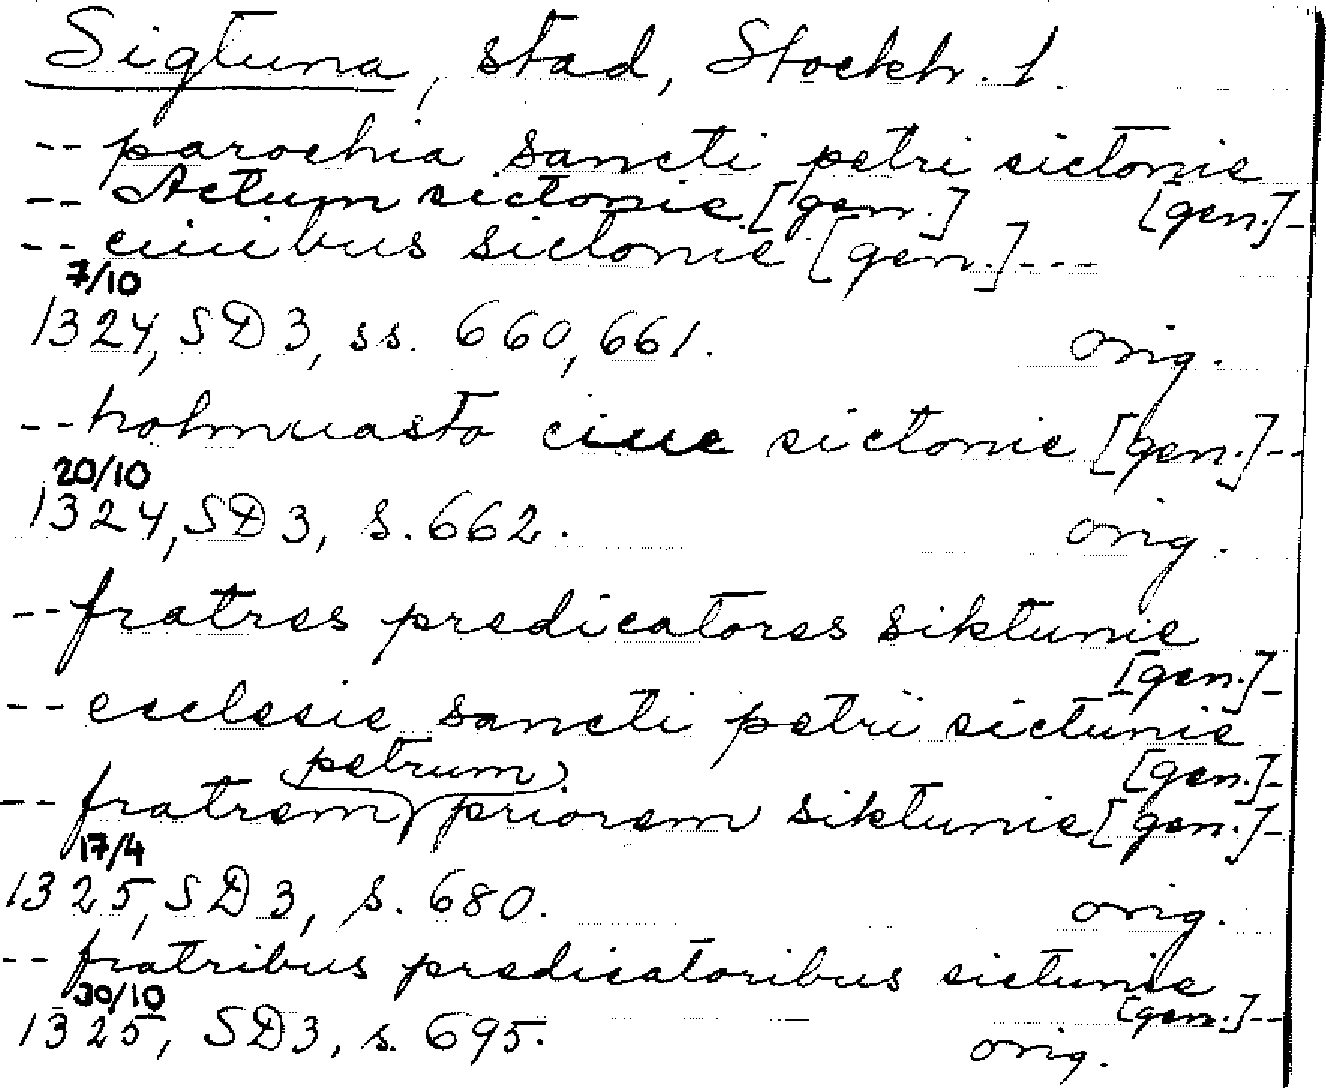 Sigtuna, stad, Stockh. l.
-- parochia sancti petri sictonie
[gen.]-
-- Actum sictonie [gen.]
-- ciuibus sictonie [gen.]---
7/10
1324, SD 3, ss. 660, 661. orig.
-- holmuasto ciue sictonie [gen.]--
20/10
1324, SD 3, s. 662. orig.
-- fratres predicatores siktunie
[gen.]-
-- ecclesie sancti petri sictunie
[gen.]-
petrum
-- fratrem priorem siktunie [gen.]-
17/4
1325, SD 3, s. 680. orig.
-- fratribus predicatoribus sictunie
[gen.]--
30/10
1325, SD 3, s. 695. orig.